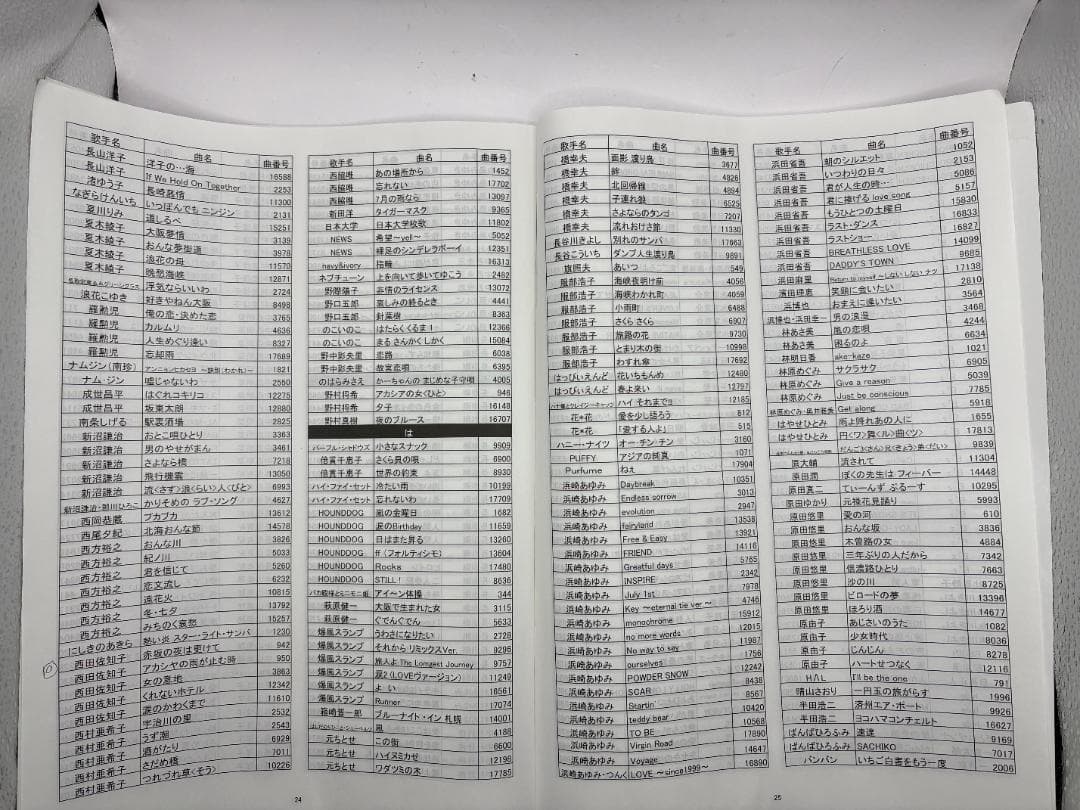 歌手名 曲名 曲番号
長山洋子 洋子の…海 16588
長山洋子 If We Hold On Together 2253
渚ゆう子 長崎慕情 11300
なぎらけんいち いっぽんでもニンジン 2131
夏川りみ 道しるべ 15251
夏木綾子 大阪夢情 3139
夏木綾子 おんな夢街道 3978
夏木綾子 浪花の母 11570
夏木綾子 晩愁海峡 12871
浮気ならいいわ 2724
浪花こゆき 好きやねん大阪 8498
羅勲児 俺の恋・決めた恋 3765
羅勲児 カルムリ 4636
羅勲児 人生めぐり逢い 8327
羅勲児 忘却雨 17689
ナムジン(南珍) アンニョンヒカセヨ 1821
ナム・ジン 嘘じゃないわ 2550
成世昌平 はぐれコキリコ 12275
成世昌平 坂東太朗 12880
南条しげる 駅裏酒場 2825
新沼謙治 おとこ唄ひとり 3363
新沼謙治 男のやせがまん 3461
新沼謙治 さよなら橋 7218
新沼謙治 飛行機雲 13050
新沼謙治 流<さす>浪<らい>人<びと> 6993
かりそめの ラブ・ソング 4627
西岡恭蔵 プカプカ 13612
西尾夕紀 北海おんな節 14578
西方裕之 おんな川 3826
西方裕之 紀ノ川 5033
西方裕之 君を信じて 5260
西方裕之 恋文流し 6232
西方裕之 遠花火 10815
西方裕之 冬・七夕 13792
西方裕之 みちのく哀愁 15257
にしきのあきら 熱い炎 スター・ライト・サンバ 1230
西田佐知子 赤坂の夜は更けて 942
西田佐知子 アカシヤの雨が止む時 950
西田佐知子 女の意地 3863
西田佐知子 くれないホテル 12342
西田佐知子 涙のかわくまで 11610
西村亜希子 宇治川の里 2532
西村亜希子 うず潮 2543
西村亜希子 酒がたり 6929
西村亜希子 さだめ橋 7011
西村亜希子 つれづれ草<そう> 10226
24
歌手名 曲名 曲番号
西脇唯 あの場所から 1452
西脇唯 忘れない 17702
西脇唯 7月の雨なら 13097
新田洋 タイガーマスク 9365
日本大学 日本大学校歌 11802
NEWS 希望~yell~ 5052
NEWS 裸足のシンデレラボーイ 12351
navy&ivory 指輪 16313
ネプチューン 上を向いて歩いてゆこう 2482
野際陽子 非情のライセンス 13072
野口五郎 哀しみの終るとき 4441
野口五郎 針葉樹 8363
のこいのこ はたらくくるま1 12366
のこいのこ まる さんかく しかく 15084
野中彩央里 恋路 6038
野中彩央里 故宮恋唄 6395
のはらみさえ かーちゃんの まじめな子守唄 4005
野村将希 アカシアの女<ひと> 948
野村将希 夕子 16148
野村真樹 夜のブルース 16707
は
パープル・シャドウズ 小さなスナック 9909
倍賞千恵子 さくら貝の唄 6900
倍賞千恵子 世界の約束 8930
ハイ・ファイ・セット 冷たい雨 10199
ハイ・ファイ・セット 忘れないわ 17709
HOUNDDOG 嵐の金曜日 1682
HOUNDDOG 涙のBirthday 11659
HOUNDDOG 日はまた昇る 13260
HOUNDDOG ff (フォルティシモ) 13604
HOUNDDOG Rocks 17480
HOUNDDOG STILL! 8636
バカ殿様とミニモニ姫 アイ~ン体操 344
萩原健一 大阪で生まれた女 3115
萩原健一 ぐでんぐでん 5633
爆風スランプ うわさになりたい 2728
爆風スランプ それから リミックスVer. 9295
爆風スランプ 旅人よ The Longest Journey 9757
爆風スランプ 涙2 (LOVEヴァージョン) 11249
爆風スランプ よ い 16561
爆風スランプ Runner 17074
箱崎晋一郎 ブルーナイト・イン 札幌 14001
風 4188
元ちとせ この街 6600
元ちとせ ハイヌミカゼ 12196
元ちとせ ワダツミの木 17785
歌手名 曲名 曲番号
橋幸夫 面影 渡り鳥 3677
橋幸夫 絆 4826
橋幸夫 北回帰線 4894
橋幸夫 子連れ狼 6525
橋幸夫 さよならのタンゴ 7207
橋幸夫 流れおけさ節 11330
長谷川きよし 別れのサンバ 17663
長谷こういち ダンプ人生渡り鳥 9891
旗照夫 あいつ 549
服部浩子 海峡夜明け前 4056
服部浩子 海峡わかれ町 4059
服部浩子 小雨町 6488
服部浩子 さくら さくら 6907
服部浩子 旅路の花 9730
服部浩子 とまり木の街 10998
服部浩子 わすれ傘 17692
はっぴいえんど 花いちもんめ 12480
はっぴいえんど 春よ来い 12797
ハイ それまでヨ 12185
花*花 愛を少し語ろう 812
花*花 「愛する人よ」 515
ハニー・ナイツ オー・チン・チン 3160
PUFFY アジアの純真 1071
Purfume ねぇ 17904
浜崎あゆみ Daybreak 10351
浜崎あゆみ Endless sorrow 3013
浜崎あゆみ evolution 2947
浜崎あゆみ fairyland 13538
浜崎あゆみ Free & Easy 13921
浜崎あゆみ FRIEND 14116
浜崎あゆみ Greatful days 5765
浜崎あゆみ INSPIRE 2342
浜崎あゆみ July 1st 7978
浜崎あゆみ Key ~eternal tie ver~ 4746
浜崎あゆみ monochrome 15912
浜崎あゆみ no more words 12015
浜崎あゆみ No way to say 11987
浜崎あゆみ ourselves 1756
浜崎あゆみ POWDER SNOW 12242
浜崎あゆみ SCAR 8438
浜崎あゆみ Startin' 8567
浜崎あゆみ teddy bear 10420
浜崎あゆみ TO BE 10568
浜崎あゆみ Virgin Road 17890
浜崎あゆみ Voyage 14647
浜崎あゆみ・つんく LOVE ~since1999~ 16890
25
歌手名 曲名 曲番号
浜田省吾 朝のシルエット 1052
浜田省吾 いつわりの日々 2153
浜田省吾 君が人生の時… 5086
浜田省吾 君に捧げる love song 5157
浜田省吾 もうひとつの土曜日 15830
浜田省吾 ラスト・ダンス 16833
浜田省吾 ラストショー 16827
浜田省吾 BREATHLESS LOVE 14099
浜田省吾 DADDY'S TOWN 9685
浜田麻里 Return to myself ~しない しない ナツ 17138
濱田理恵 笑顔に会いたい 2810
浜博也 おまえに逢いたい 3564
浜博也・浜田圭一 男の浪漫 3468
林あさ美 風の恋唄 4244
林あさ美 困るのよ 6634
林明日香 ake-kaze 1021
林原めぐみ サクラサク 6905
林原めぐみ Give a reason 5039
林原めぐみ Just be conscious 7785
林原めぐみ・奥井雅美 Get along 5918
はやせひとみ 雨よ降れあの人に 1655
はやせひとみ 円<ワ>舞<ル>曲<ツ> 17813
だんご3<さん>兄<きょう>弟<だい> 9839
原大輔 涙されて 11304
原田潤 ぼくの先生は フィーバー 14448
原田真二 てぃーんず ぶるーす 10295
原田ゆかり 元禄花見踊り 5993
原田悠里 愛の河 610
原田悠里 おんな坂 3836
原田悠里 木曽路の女 4884
原田悠里 三年ぶりの人だから 7342
原田悠里 信濃路ひとり 7663
原田悠里 沙の川 8725
原田悠里 ビロードの夢 13396
原田悠里 ほろり酒 14677
原由子 あじさいのうた 1082
原由子 少女時代 8036
原由子 じんじん 8278
原由子 ハートせつなく 12116
HΛL I'll be the one 791
晴山さおり 一円玉の旅がらす 1996
半田浩二 済州エア・ポート 9926
半田浩二 ヨコハマコンチェルト 16627
ばんばひろふみ 速達 9169
ばんばひろふみ SACHIKO 7017
バンバン いちご白書をもう一度 2006